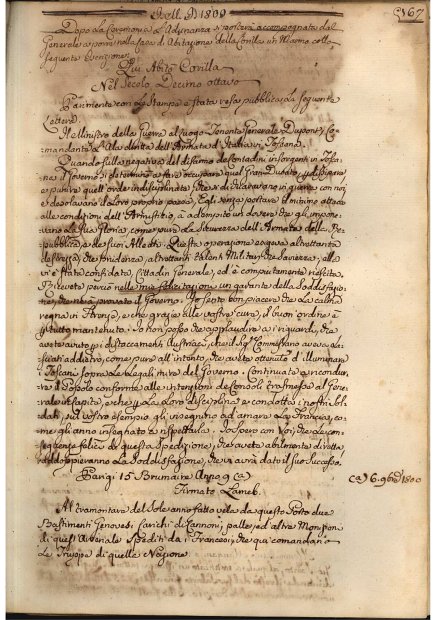 Nell' A. 1800
367
Dopo la Ceremonia l'Adunanza si portò in accompagnata dal
Generale a porre nella facc. di Abitazione della Corilla un Marmo colla
seguente Iscrizione.
Qui Abitò Corilla
Nel Secolo Decimo ottavo
Parimente con la Stampa è stata resa pubblica la seguente
Lettera.
Il Ministro della Guerra al Luogo Tenente Generale Dupont, Co-
mandante l'Ala diritta dell'Armata d'Italia in Toscana.
Quando sulla negativa del disarmo de Contadini insorgenti in Tosca-
na il Governo si determinò a fare occupare quel Gran Ducato, per disperdere
e punire quell'orde indisciplinate, che si dichiaravano in guerra con noi,
e desolavano il loro proprio paese, Egli senza portare il minimo attacco
alle condizioni dell'Armistizio, à adempito un dovere che gli impone-
vano la sua Gloria, come pure la Sicurezza dell'Armata della Re-
pubblica, e de suoi Alleati. Questa operazione esigeva altrettanta
destrezza, che prudenza, altrettanti talenti Militari, che Saviezza; alla
vi è stata confidata, Cittadin Generale, ed è compiutamente riescita.
Ricevete perciò nelle mie felicitazioni un garante della Soddisfazio-
ne, che ne hà provato il Governo. Io sento con piacere che la calma
regna in Firenze, e che grazie alle vostre cure, il buon ordine è
per tutto mantenuto. Io non posso che applaudire a i riguardi, che
avete avuto per i distaccamenti Austriaci, che il Sig.r Commissario aveva la-
sciati addietro, come pure all'intento, che avete ottenuto d'illuminare i
Toscani sopra le legali mire del Governo. Continuate a ricondur-
re il Popolo conforme alle intenzioni de Consoli trasmesse al Gene-
rale in capite, e che per la loro disciplina e condotta i nostri Sol-
dati, sul vostro esempio, gli insegnino ad amare la Francia, co-
me gli anno insegnato a rispettarla. Io spero con Voi, che le con-
seguenze felici di questa Spedizione, che avete abilmente diretta
raddoppieranno la Soddisfazione, che vi avrà dato il suo Successo.
Parigi 15 Brumaire Anno 9 (a)
(a) 6. 9bre 1800
Firmato Lameb.
Al tramontare del Sole anno fatto vela da questo Porto due
Bastimenti Genovesi carichi di Cannoni, palle, ed altre Monizioni
di quest'Arsenale Spediti da i Francesi, che qui comandano
le Truppe di quelle Nazione